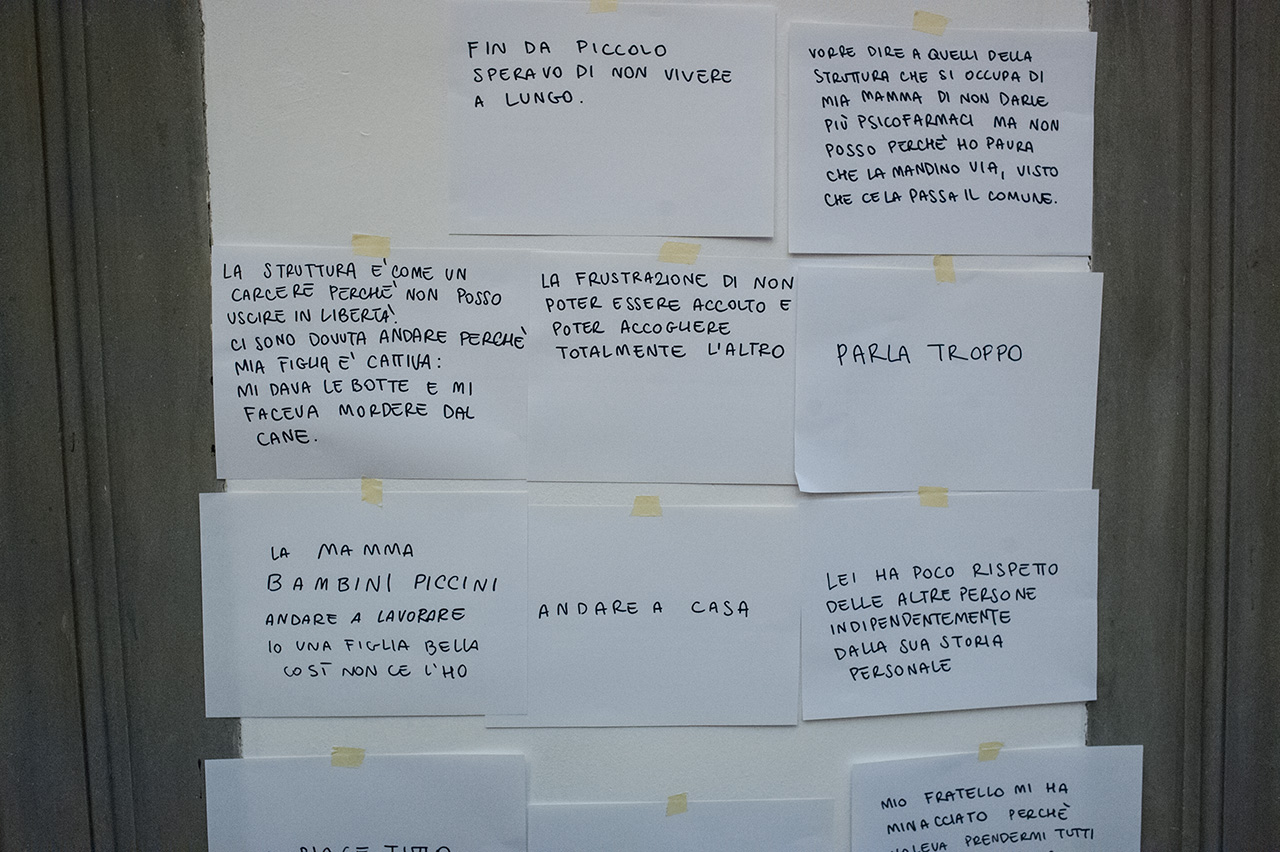 FIN DA PICCOLO
SPERAVO DI NON VIVERE
A LUNGO.
VORRE DIRE A QUELLI DELLA
STRUTTURA CHE SI OCCUPA DI
MIA MAMMA DI NON DARLE
PIÙ PSICOFARMACI MA NON
POSSO PERCHÈ HO PAURA
CHE LA MANDINO VIA, VISTO
CHE CE LA PASSA IL COMUNE.
LA STRUTTURA E' COME UN
CARCERE PERCHE' NON POSSO
USCIRE IN LIBERTA'.
CI SONO DOVUTA ANDARE PERCHE'
MIA FIGLIA E' CATTIVA:
MI DAVA LE BOTTE E MI
FACEVA MORDERE DAL
CANE.
LA FRUSTRAZIONE DI NON
POTER ESSERE ACCOLTO E
POTER ACCOGLIERE
TOTALMENTE L'ALTRO
PARLA TROPPO
LA MAMMA
BAMBINI PICCINI
ANDARE A LAVORARE
IO UNA FIGLIA BELLA
COSÌ NON CE L'HO
ANDARE A CASA
LEI HA POCO RISPETTO
DELLE ALTRE PERSONE
INDIPENDENTEMENTE
DALLA SUA STORIA
PERSONALE
MIO FRATELLO MI HA
MINACCIATO PERCHÈ
VOLEVA PRENDERMI TUTTI